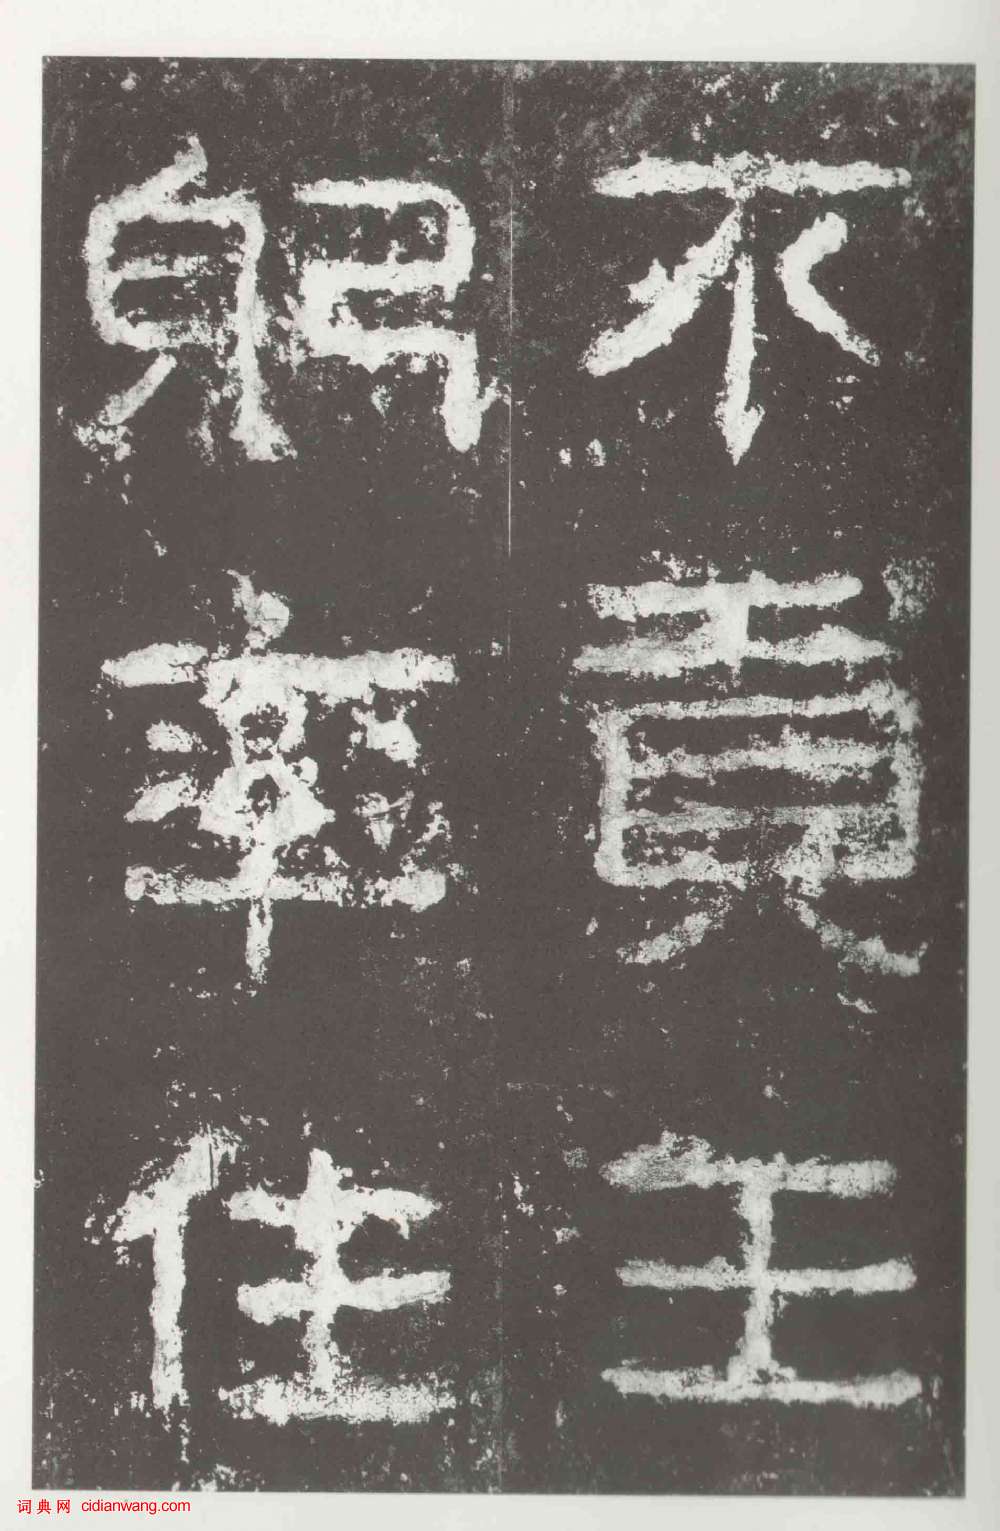 不貢王
躬率住
词典网 cidianwang.com